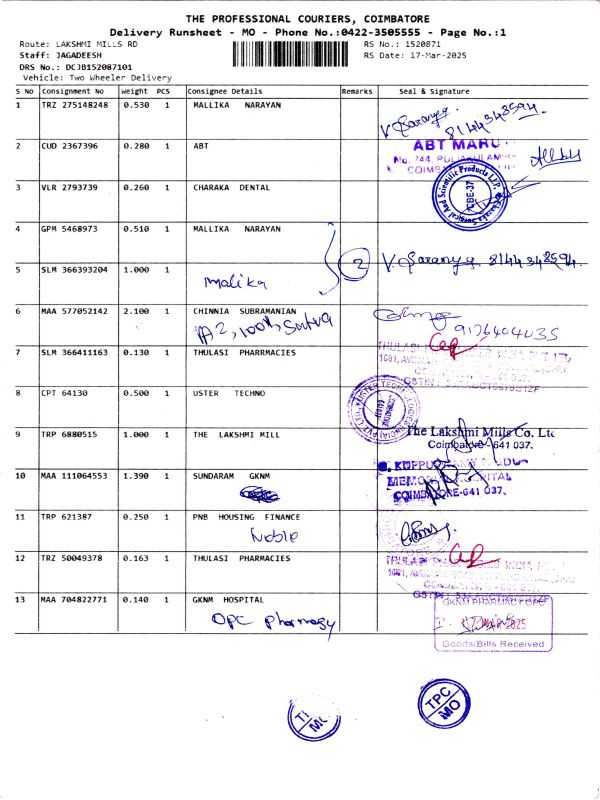 THE PROFESSIONAL COURIERS, COIMBATORE
Delivery Runsheet - MO - Phone No.:0422-3505555 - Page No.:1
Route: LAKSHMI MILLS RD
RS No.: 1520871
Staff: JAGADEESH
RS Date: 17-Mar-2025
DRS No.: DCJB152087101
Vehicle: Two Wheeler Delivery
S No Consignment No Weight PCS Consignee Details Remarks Seal & Signature
1 TRZ 275148248 0.530 1 MALLIKA NARAYAN
V. Saranya. 8144348594
2 CUD 2367396 0.280 1 ABT
ABT MARU
No. 744, PULIAKULAM
COIMB
3 VLR 2793739 0.260 1 CHARAKA DENTAL
Charaka Surgical And Scientific Products LLP.
CBE-37
4 GPM 5468973 0.510 1 MALLIKA NARAYAN
2 V. Saranya 8144348594.
5 SLM 366393204 1.000 1
malika
6 MAA 577052142 2.100 1 CHINNIA SUBRAMANIAN
A2, 100ft
9126404035
7 SLM 366411163 0.130 1 THULASI PHARRMACIES
THULASI INDIA PVT LTD
1081,
8 CPT 64130 0.500 1 USTER TECHNO
USTER TECHNOLOGIES (INDIA) PVT. LTD.
9 TRP 6880515 1.000 1 THE LAKSHMI MILL
The Lakshmi Mills Co. Ltd
Coimbatore-641 037.
10 MAA 111064553 1.390 1 SUNDARAM GKNM
G. KUPPU
MEMORIAL HOSPITAL
COIMBATORE-641 037.
11 TRP 621387 0.250 1 PNB HOUSING FINANCE
Noble
12 TRZ 50049378 0.163 1 THULASI PHARMACIES
THULASI INDIA PVT LTD
1081,
13 MAA 704822771 0.140 1 GKNM HOSPITAL
OPC Pharmacy
GKNM PHARMACY OPD
17 MAR 2025
Goods/Bills Received
TPC
MO
MO